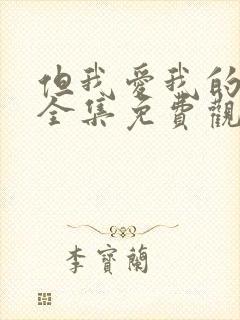 但我愛我的
全集免費觀
李寶蘭